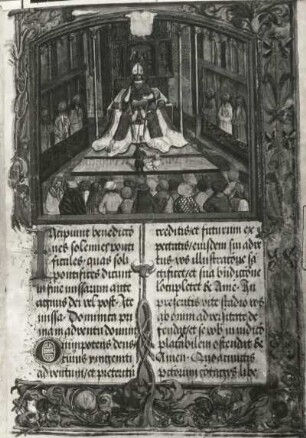 Incipiunt benedictō
nes solemnes ponti
ficales, quas soli
pontifices dicunt
in fine missarum ante
agnus dei vel post Ite
missa Dominica pri
ma in adventu domini
Omnipotens deus
unigeniti
adventum, et preteritū
creditis, et futurum ex
pectatis, eiusdem sui adve
tus vos illustratione sā
ctificet, et sua bñdictione
locupletet & Amē In
presentis vite stadio vos
ab omni adversitate de
fendat, et se vob in iudicio
placabilem ostendat &
Amen Quo a cunctis
pctorum cōtagiis libe